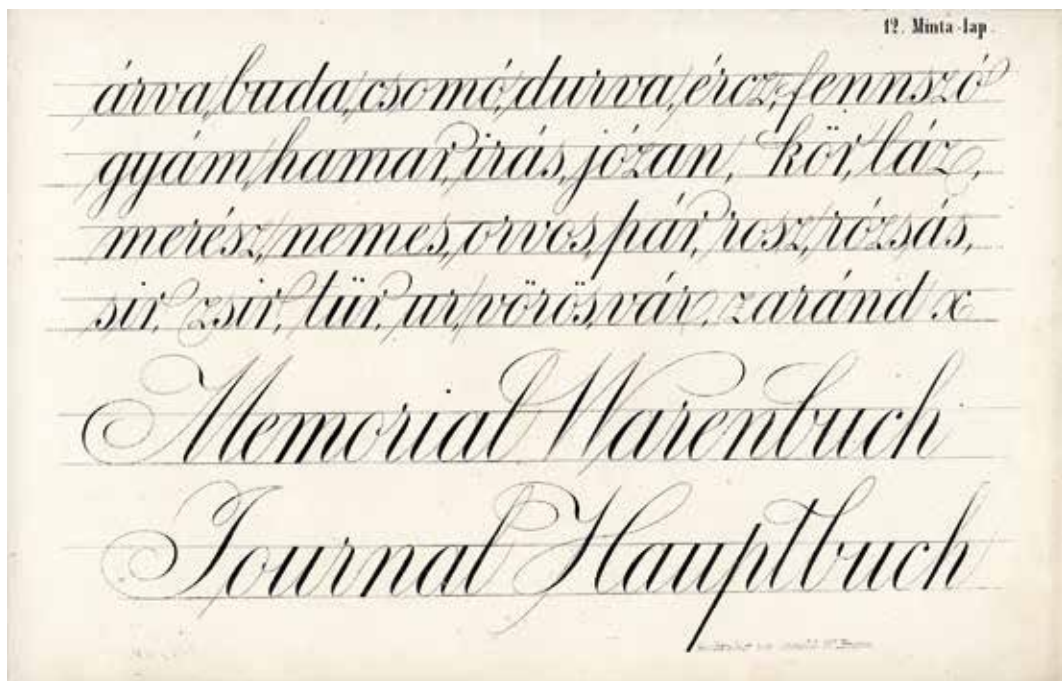 12. Minta-lap.
árva, buda, csomó, durva, ércz, fennszó
gyám, hamar, irás, józan, kör, láz,
merész, nemes, orvos, pár, rosz, rózsás,
sir, zsir, tür, ur, vörösvár, zaránd x
Memorial Warenbuch
Journal Hauptbuch